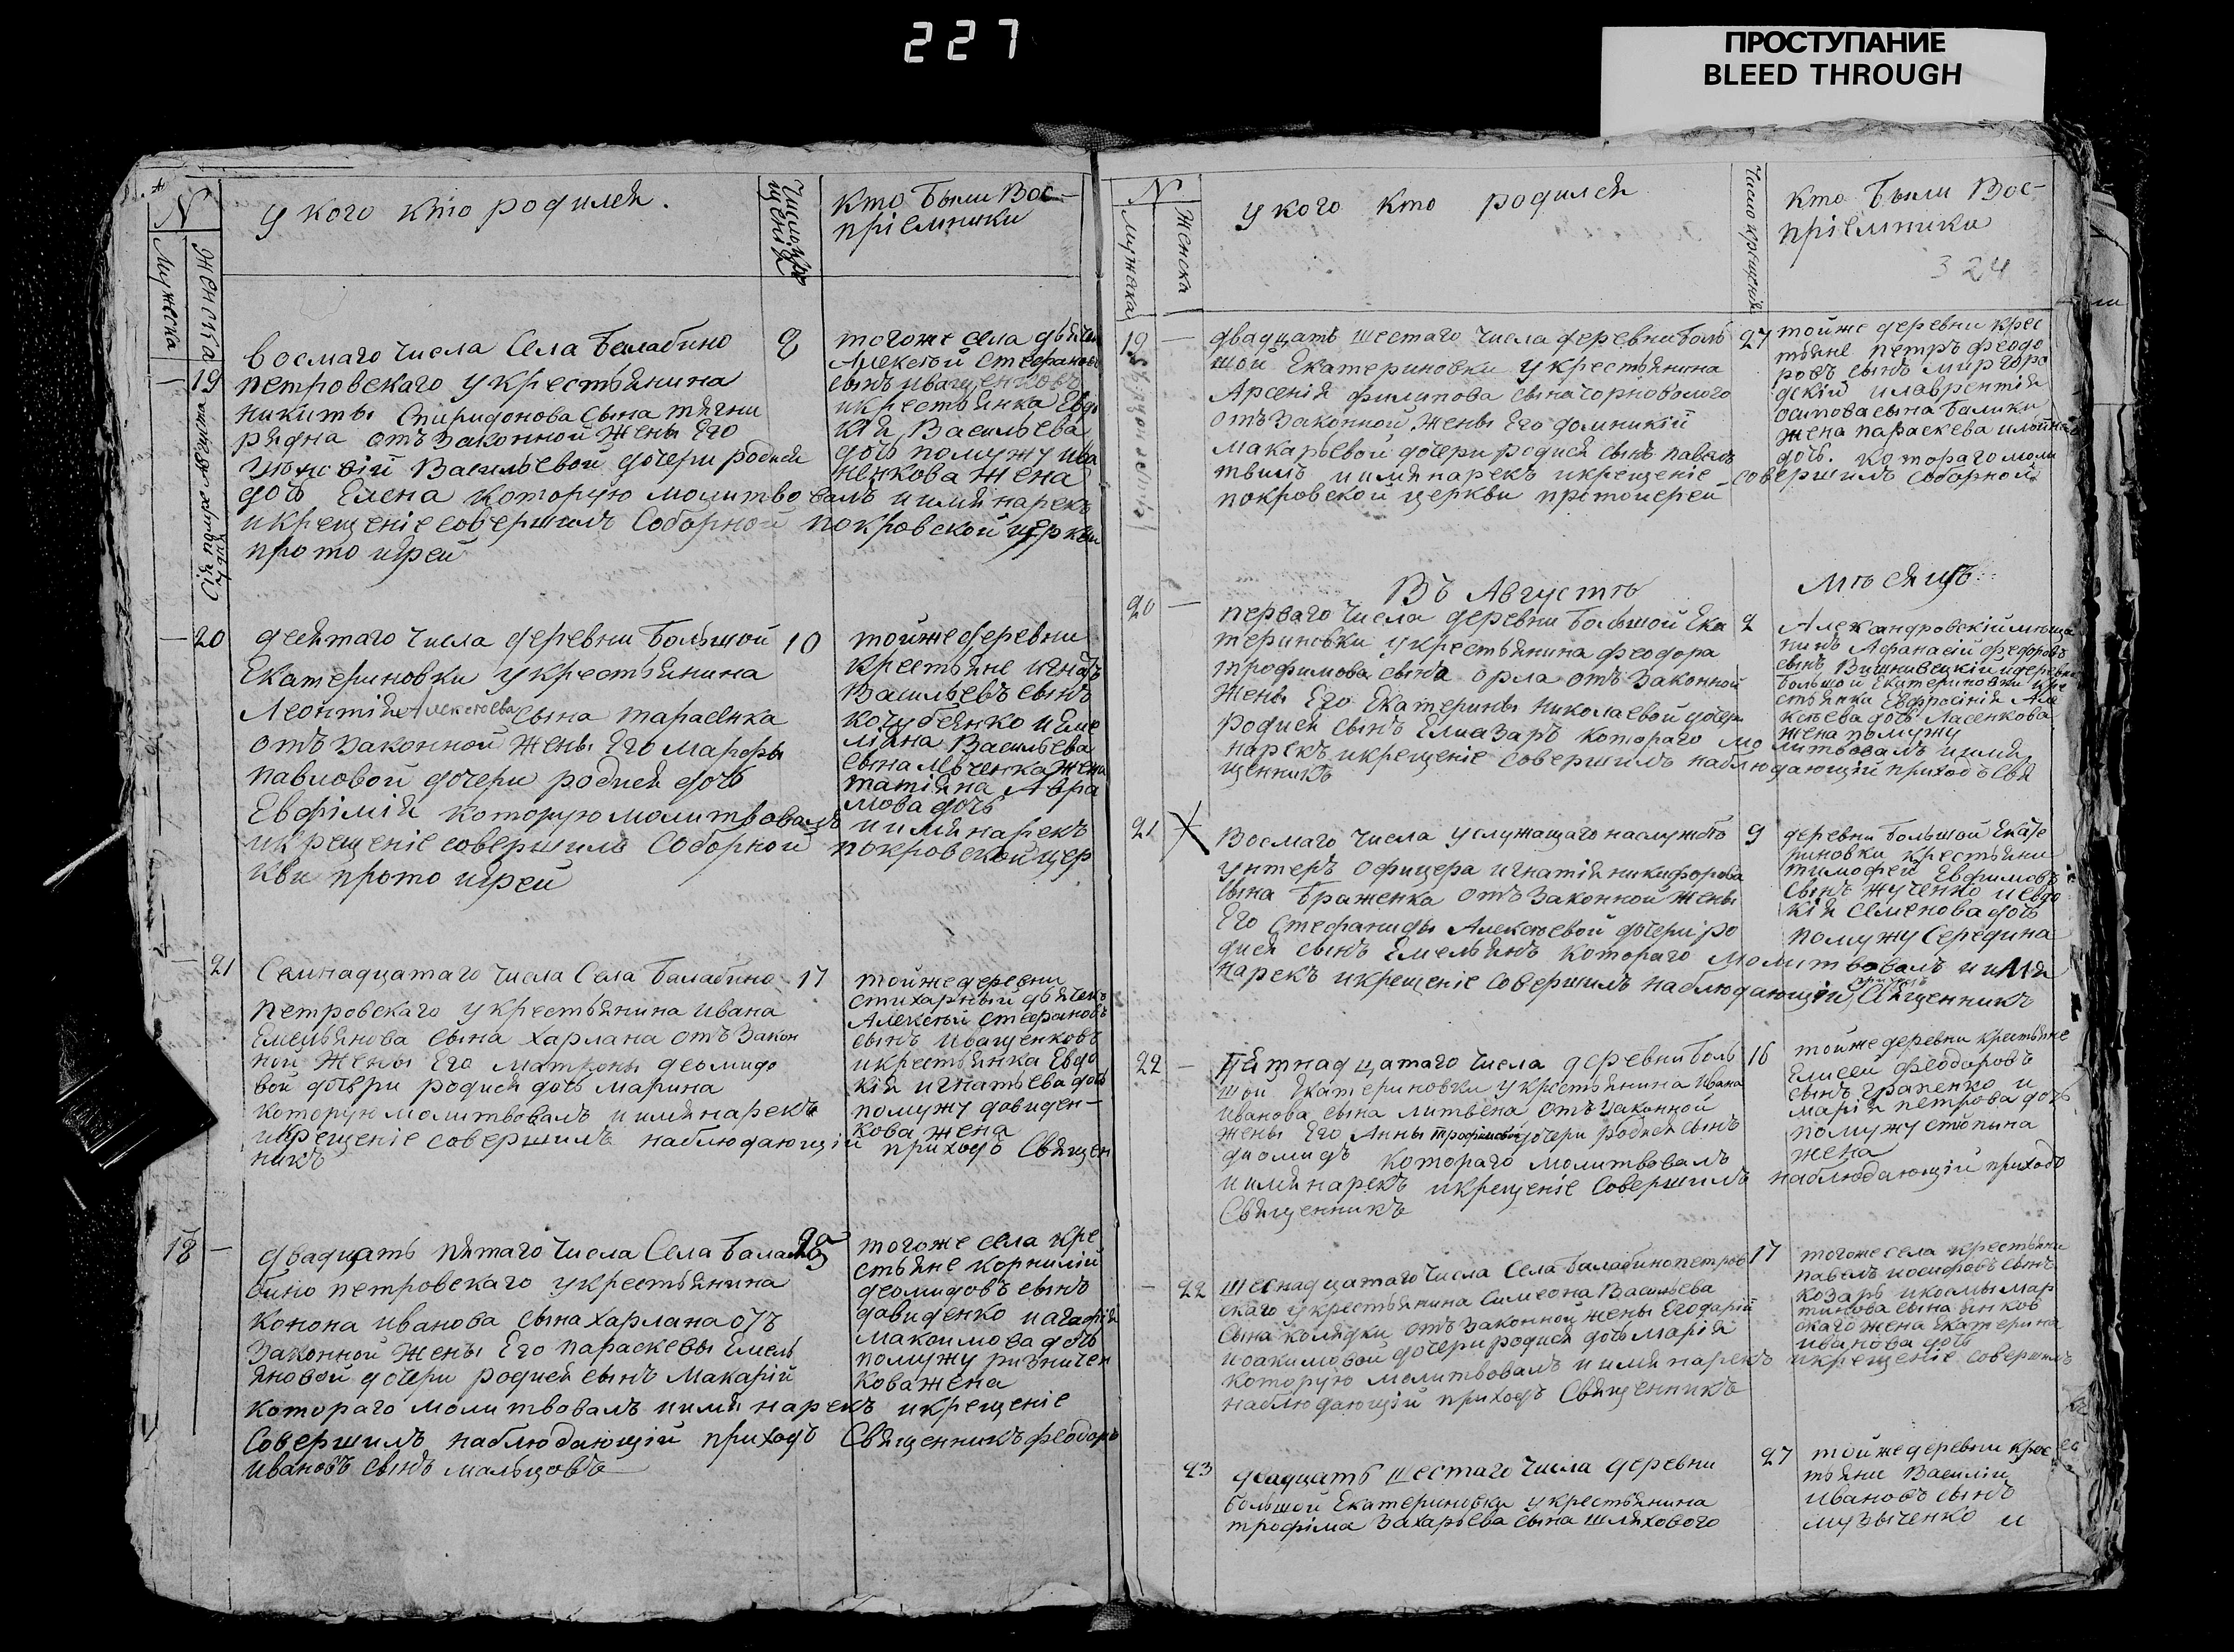 227
ПРОСТУПАНИЕ
BLEED THROUGH
N
Мужеска
Женска
у кого кто родился.
Число кре
щенія
кто были Вос-
пріемники
19
восмаго числа Села Балабино
петровскаго у крестьянина
никиты Спиридонова сына тягни
рядна отъ законной жены Его
Васильевой дочери родися
дочь Елена которую молитвовалъ и имя нарекъ
и крещеніе совершилъ Соборной покровской церкви
прото иерей
8
тогоже села дьячекъ
Алексѣй Стефановъ
сынъ иващенковъ
и крестьянка Евдо
кія Васильева
дочь по мужу ива
ненкова жена
20
десятаго числа деревни Большой
Екатериновки у крестьянина
Леонтія Алексѣева сына тарасенка
отъ законной жены Его марфы
павловой дочери родися дочь
Евфимія которую молитвовалъ и имя нарекъ
и крещеніе совершилъ Соборной покровской цер
кви прото иерей
10
тойже деревни
крестьяне игнатъ
Васильевъ сынъ
кочубѣенко и Еме
ліана Васильева
сына левченка жена
татіана Авра
мова дочь
21
Семнадцатаго числа Села Балабино
петровскаго у крестьянина ивана
Емельянова сына харлана отъ закон
ной жены Его матроны деомидо
вой дочери родися дочь марина
которую молитвовалъ и имя нарекъ
и крещеніе совершилъ наблюдающій приходъ Священ
никъ
17
тойже деревни
стихарный дьячекъ
Алексѣй Стефановъ
сынъ иващенковъ
и крестьянка Евдо
кія игнатьева дочь
по мужу давиден-
кова жена
18
двадцать пятаго числа Села бала
бино петровскаго у крестьянина
конона иванова сына харлана отъ
законной жены Его параскевы Емель
яновой дочери родися сынъ Макарій
котораго молитвовалъ и имя нарекъ и крещеніе
совершилъ наблюдающій приходъ Священникъ феодоръ
ивановъ сынъ мальцовъ
25
тогоже села кре
стьяне корнилій
деомидовъ сынъ
давиденко и агафія
максимова дочь
по мужу ризничен
кова жена
N
Мужска
Женска
у кого кто родился
Число крещенія
кто были Вос-
пріемники
324
19
двадцать шестаго числа деревни боль
шой Екатериновки у крестьянина
Арсенія филипова сына чорноволого
отъ законной жены Его домникіи
макарьевой дочери родися сынъ павелъ котораго моли
твилъ и имя нарекъ и крещеніе совершилъ соборной
покровской церкви протоиерей
27
тойже деревни крес
тьяне петръ феодо
ровъ сынъ миргоро
дскій и лаврентія
осипова сына балики
жена параскева
дочь.
Въ Августѣ мѣсяцѣ
20
перваго числа деревни большой Ека
териновки у крестьянина феодора
трофимова сына орла отъ законной
жены Его Екатерины николаевой дочери
родися сынъ Елиазаръ котораго молитвовалъ и имя
нарекъ и крещеніе совершилъ наблюдающій приходъ свя
щенникъ
2
Александровскій меща
нинъ Афанасій федоровъ
сынъ Вишнивецкій и деревни
большой Екатериновки кре
стьянка Евфросінія Але
ксѣева дочь Ласенкова
жена по мужу
21
Восмаго числа у служащаго на службѣ
унтеръ офицера игнатія никифорова
сына браженка отъ законной жены
Его Стефаниды Алексѣевой дочери ро
дися сынъ Емельянъ котораго молитвовалъ и имя
нарекъ и крещеніе совершилъ наблюдающій приходъ Священникъ
9
деревни большой Екате
риновки крестьяни
тимофей Евфимовъ
сынъ жученко и евдо
кія семенова дочь
по мужу Середина
22
Пятнадцатаго числа деревни боль
шой Екатериновки у крестьянина ивана
иванова сына литвена отъ законной
жены Его Анны трофимовой дочери родися сынъ
диомидъ котораго молитвовалъ
и имя нарекъ и крещеніе совершилъ наблюдающій приходъ
Священникъ
16
тойже деревни крестьяне
Елисей феодоровъ
сынъ грапенко и
марія петрова дочь
по мужу стопына
жена
22
Шеснадцатаго числа Села балабино петров
скаго у крестьянина Симеона Васильева
сына колядки отъ законной жены Его даріи
иоакимовой дочери родися дочь марія
которую молитвовалъ и имя нарекъ и крещеніе совершилъ
наблюдающій приходъ Священникъ
17
тогоже села крестьяни
павелъ иосифовъ сынъ
козарь и космы мар
тинова сына
скаго жена Екатерина
иванова дочь
23
двадцать шестаго числа деревни
большой Екатериновки у крестьянина
трофіма Захарьева сына шляхового
27
тойже деревни крес
тьяни Василій
ивановъ сынъ
музыченко и